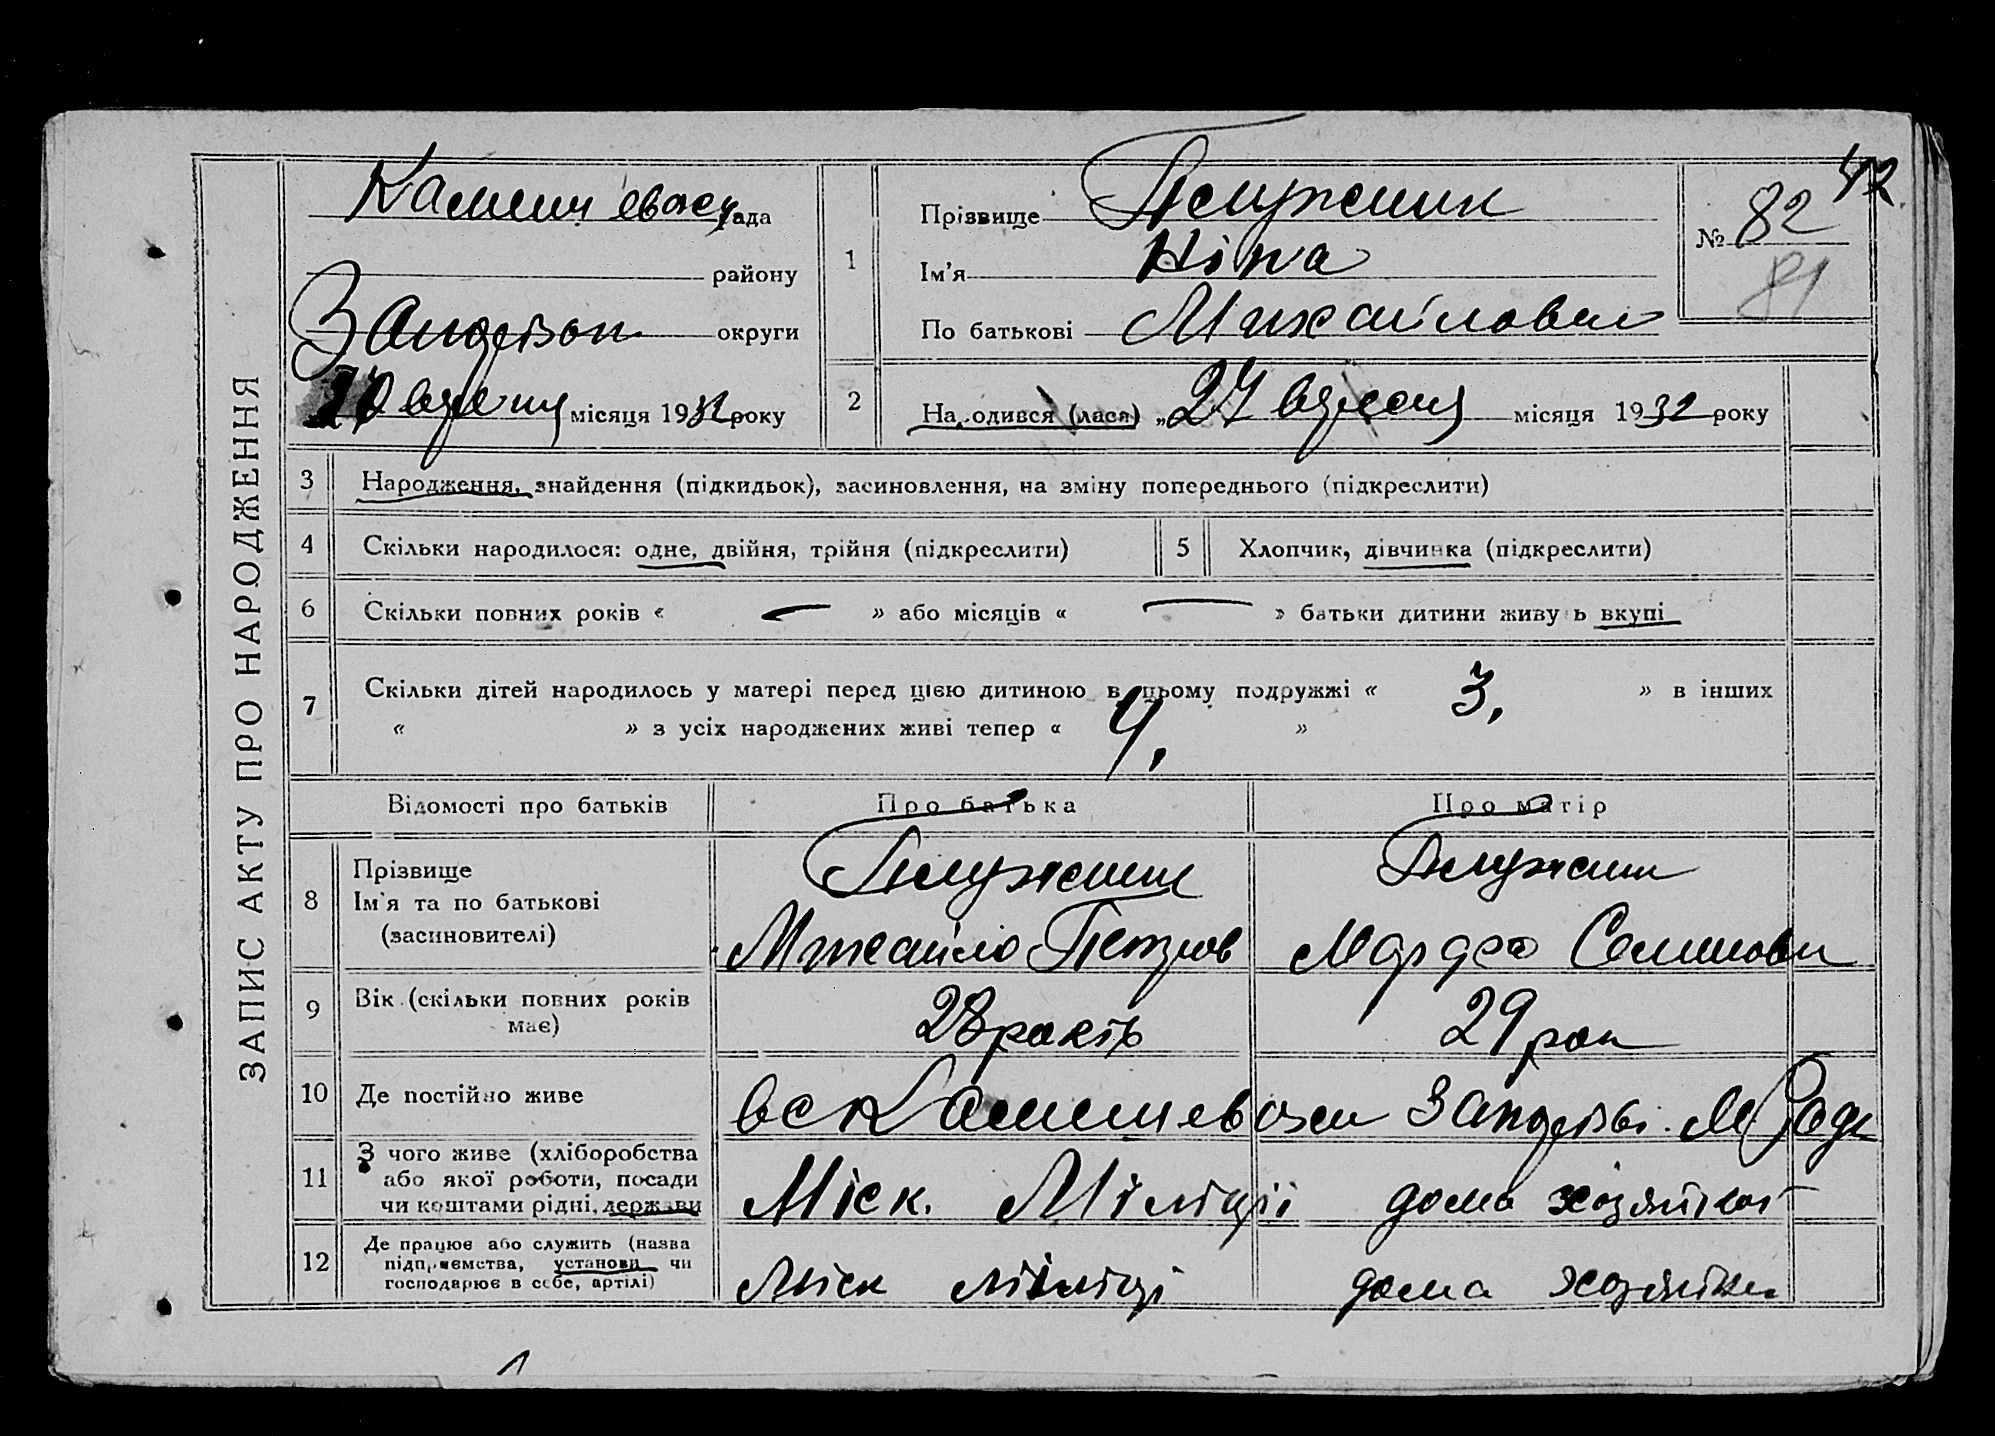 42
Камишеваск рада
району
Запоріжж округи
вересня місяця 1932 року
ЗАПИС АКТУ ПРО НАРОДЖЕННЯ
1
Прізвище Плужник
Ім'я Ніна
По батькові Михайлович
№ 82
81
2
Народився (лася) „27 вересня місяця 1932 року
3 Народження, знайдення (підкидьок), засиновлення, на зміну попереднього (підкреслити)
4 Скільки народилося: одне, двійня, трійня (підкреслити) 5 Хлопчик, дівчинка (підкреслити)
6 Скільки повних років « — » або місяців « — » батьки дитини живуть вкупі
7 Скільки дітей народилось у матері перед цією дитиною в цьому подружжі « 3, » в інших
« » з усіх народжених живі тепер « 4, »
Відомості про батьків Про батька Про матір
8 Прізвище Плужник Плужник
Ім'я та по батькові
(засиновителі) Михайло Петров Марфа Семинови
9 Вік (скільки повних років має) 28 років 29 рок
10 Де постійно живе вс Камишеваси Запорізькі М Ради
11 З чого живе (хліборобства
або якої роботи, посади
чи коштами рідні, держави Міск. Міліції дома хозяйкої
12 Де працює або служить (назва
підприємства, установи чи
господарює в себе, артілі) Міск міліці дома хозяйки
1